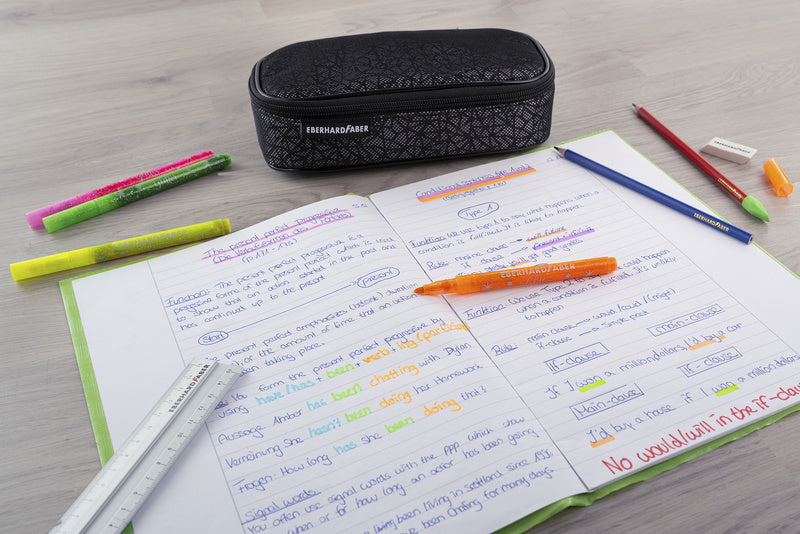 EBERHARDFABER
The present perfect Progressive
(Die Verlaufsform des
Function: The present perfect progressive is a
progressive form of the present perfect which is used
to show that an action started in the past and
has continued up to the present
Start
present
present perfect emphasises
duration
or the amount of time that an action
been taking place.
You form the present perfect progressive by
using have/has + been + verb + ing (participle)
Aussage: Amber has been chatting with Dylan
Verneinung: She hasn't been doing her homework
Fragen: How long has she been doing that?
Signal words:
You often use signal words with the PPP which show
when or for how long an action has been going
been living in scotland since
been chatting for many days.
Conditional Sentences
Type 1
Funktion: We use type 1 to say what happens when a
condition is fulfilled. It is likely to happen.
Rule: main clause → will future
if clause → present simple
get good grades
EBERHARDFABER
Funktion: We use Type 2 to
could happen
when a condition is fulfilled. It's unlikely
to happen
Rule: main clause → would/could/(might)
if-clause → simple past
if-clause
main-clause
If I won a million dollars, I'd buy a car
Main-clause
if-clause
I'd buy a house if I won a million dollars
No would/will in the if-clau
EBERHARDFABER
EBERHARDFABER
EBERHARDFABER